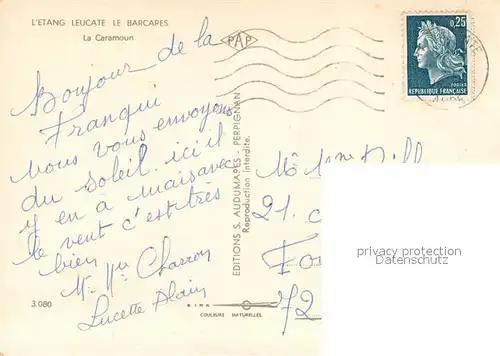 L'ETANG LEUCATE LE BARCAPES
La Caramoun
PAP
0,25
POSTES
REPUBLIQUE FRANÇAISE
Bonjour de la
Franqui
nous vous envoyons
du soleil. ici il
y en a mais avec
le vent c'est très
bien
Mr Mme Charron
Lucette Alain
3.080
EDITIONS S. AUDUMARES - PERPIGNAN
Reproduction interdite.
COULEURS NATURELLES
21.
72
privacy protection
Datenschutz